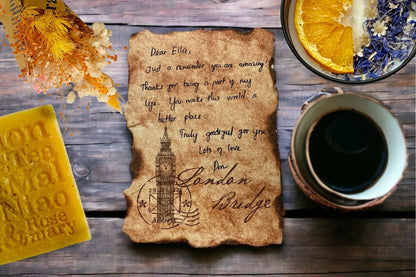 Dear Ella,
Just a reminder you are amazing
Thanks for being a part of my
life. You make this world a
better place
Truly grateful for you
Lots of love
London
Bridge
&